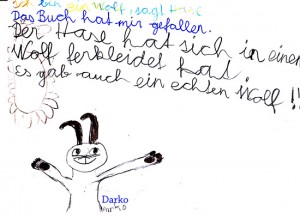 Ich bin ein Wolf, sagt Hase
Das Buch hat mir gefallen.
Der Hase hat sich in einen
Wolf ferkleidet hat.
Es gab auch ein echten Wolf !!
Darko